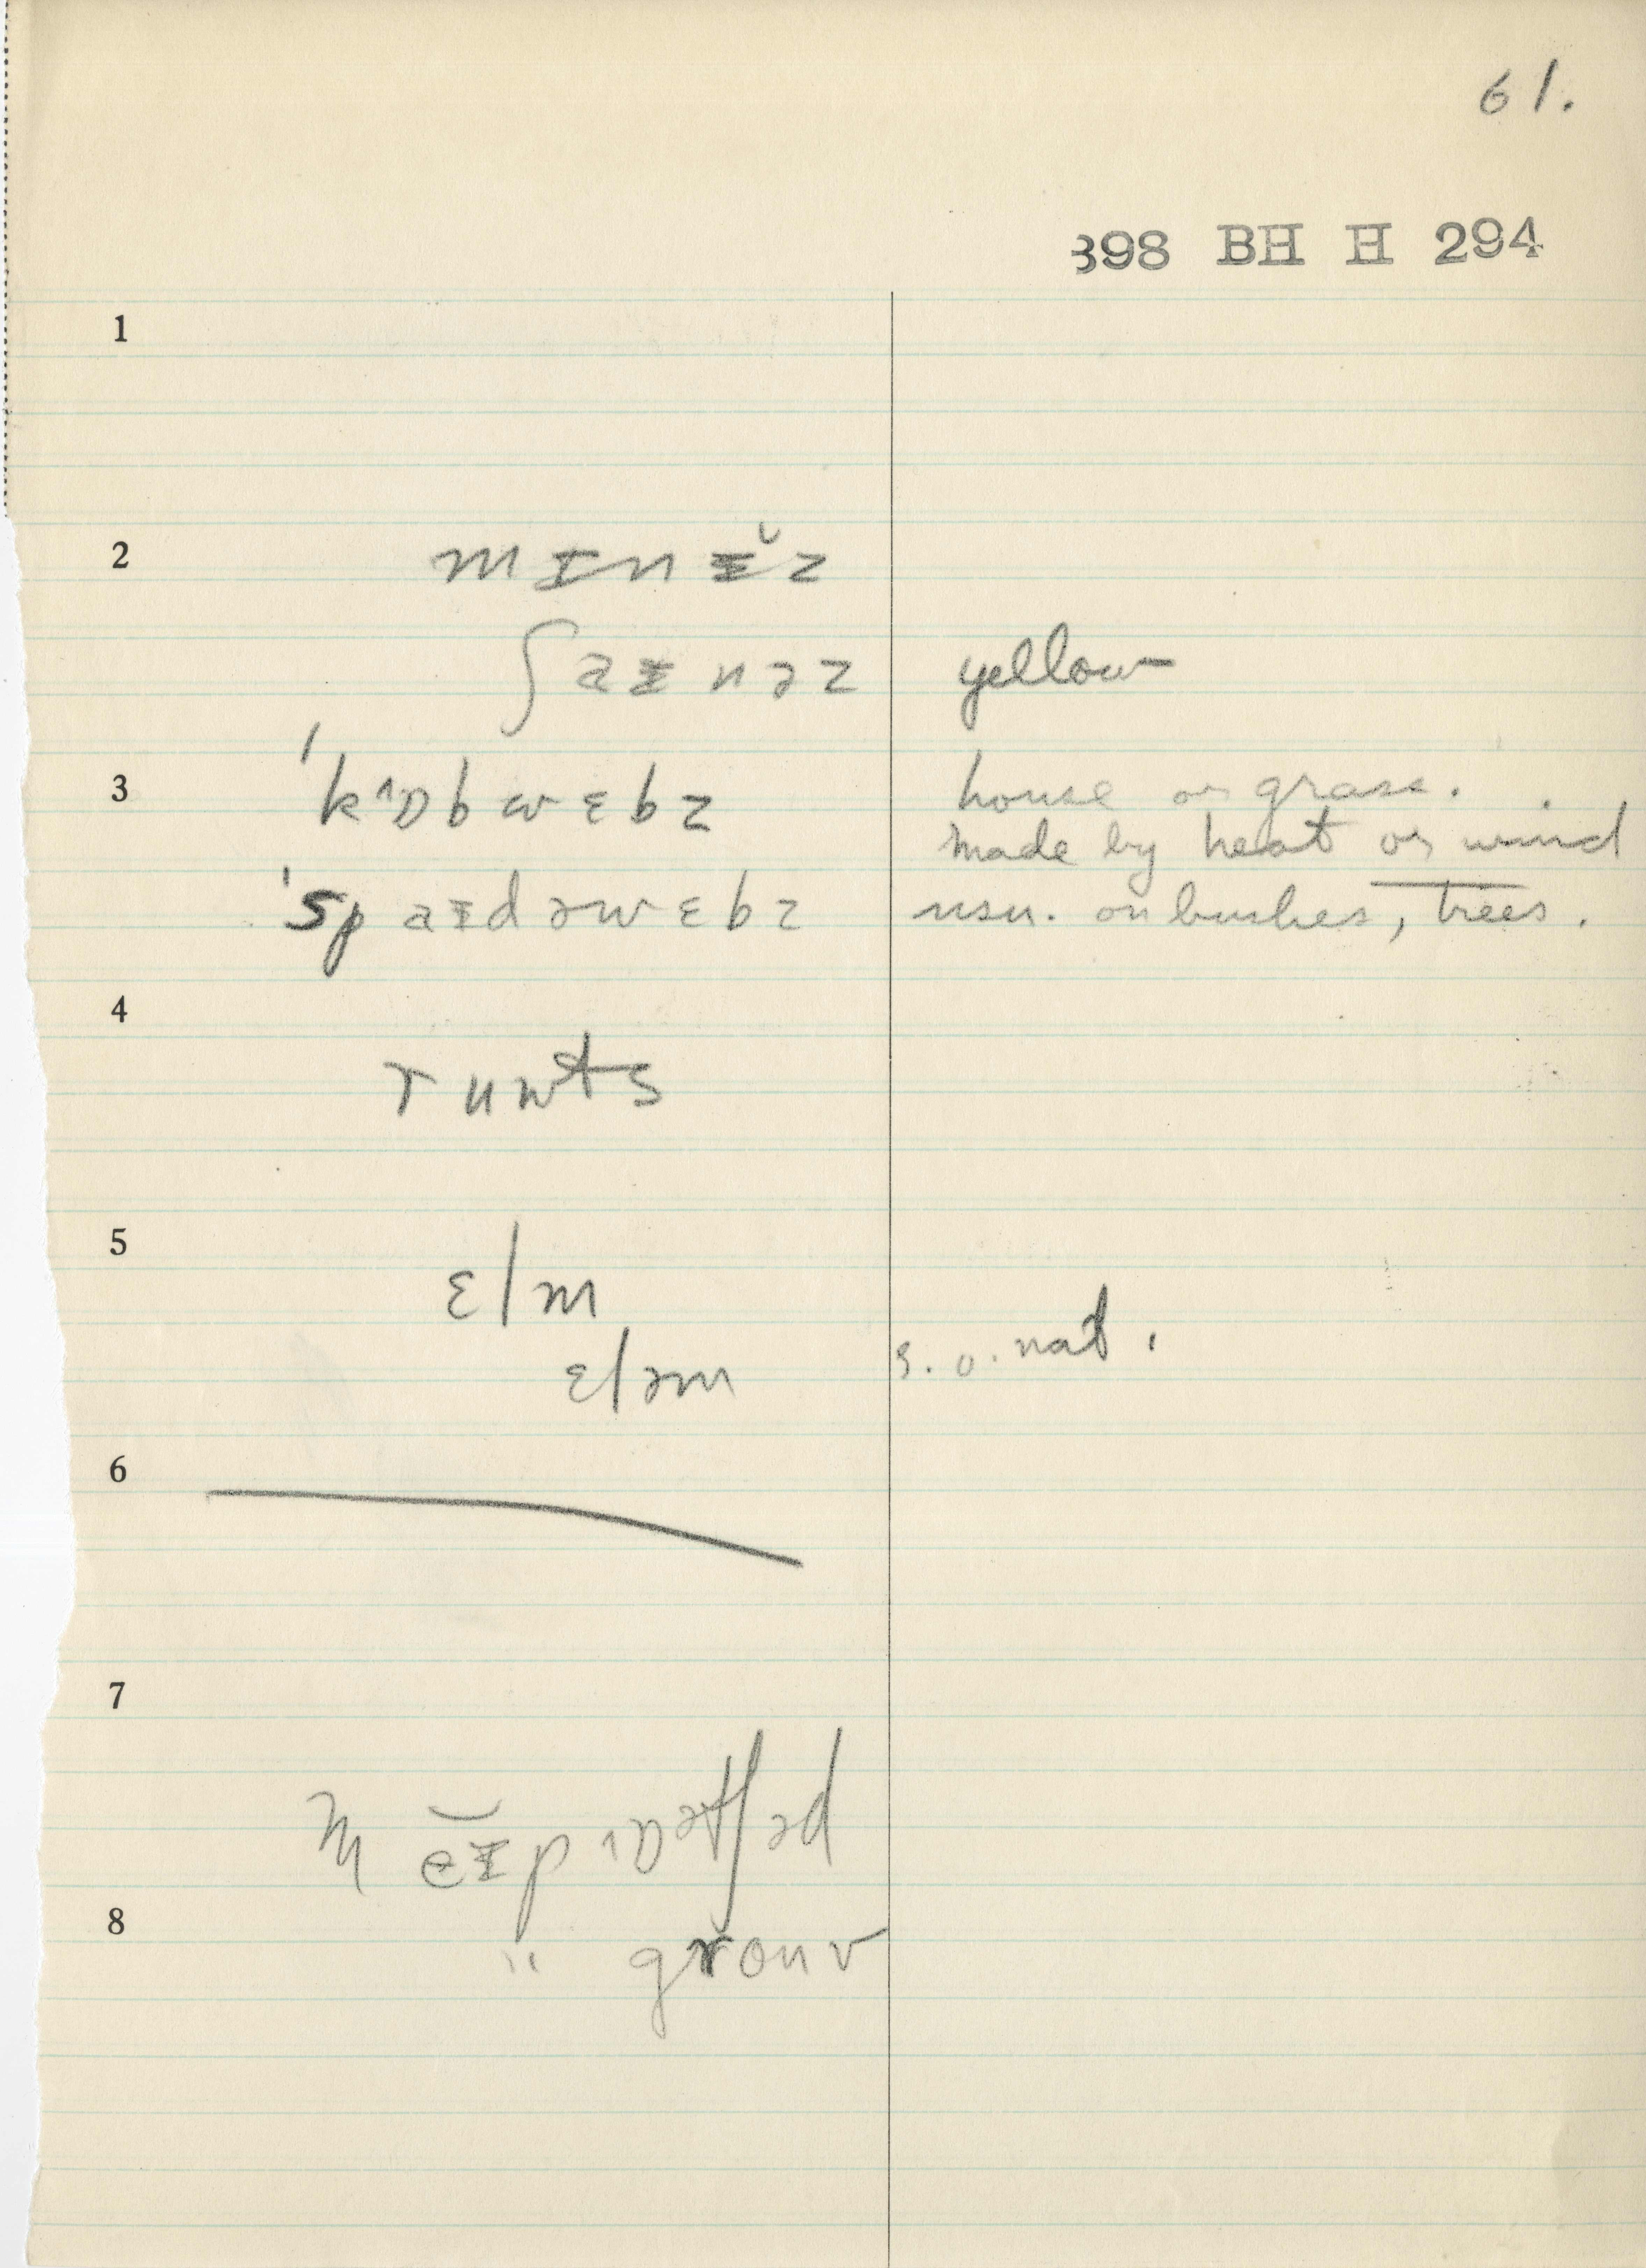 61.
398 BH H 294
1
2 mɪnɪ̆z
ʃaɪnəz yellow
3 ˈkᴧɒbwɛbz house or grass.
made by heat or wind
ˈspaɪdəwɛbz usu. on bushes, trees.
4
ruwts
5
ɛlm
ɛləm s. o. nat.
6
7
8
" grouv